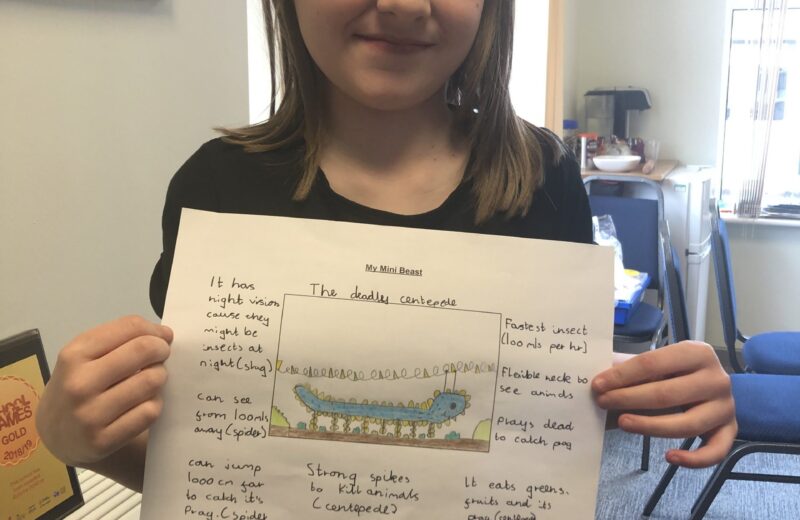 My Mini Beast
The deadly centepede
It has
night vision
cause they
might be
insects at
night (slug)
can see
from 100mls
away (spider)
can jump
1000 cm far
to catch it's
Prag. (spider
Strong spikes
to kill animals
(centepede)
Fastest insect
(100 mls per hr)
Flexible neck to
see animals
Plays dead
to catch prag
It eats greens.
fruits and its
prag
GAMES
GOLD
2018/19